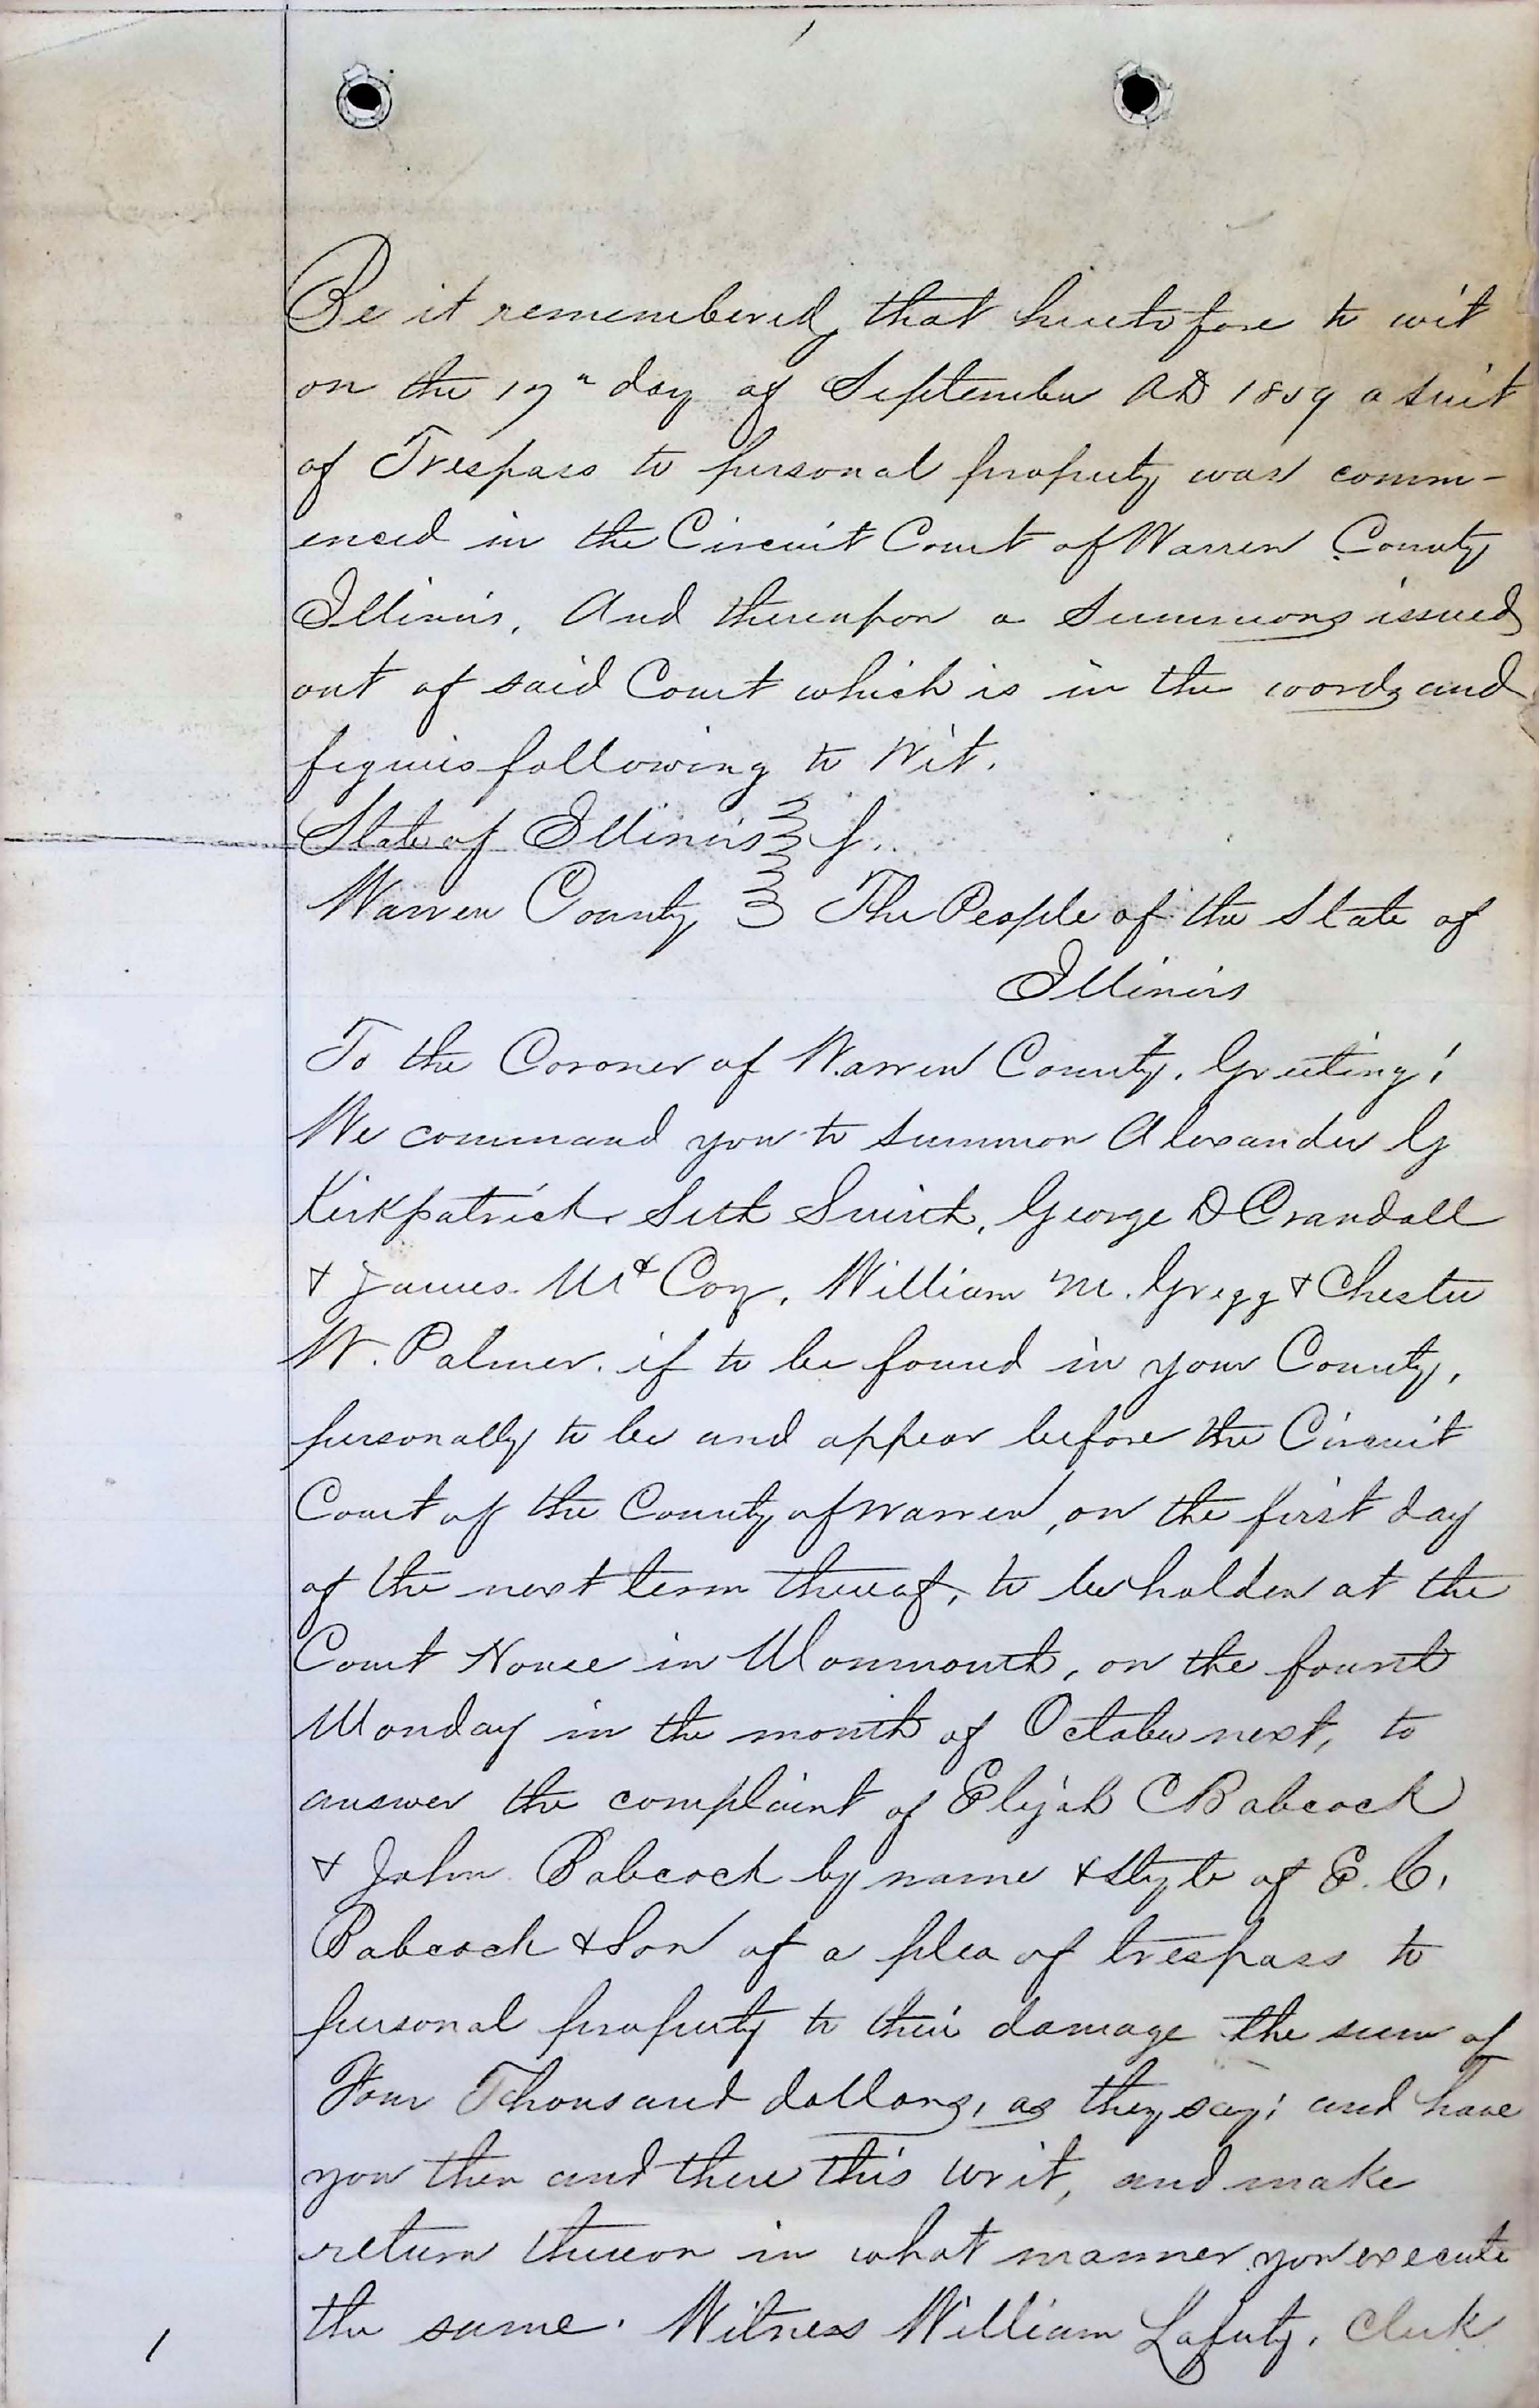 Be it remembered, that heretofore to wit
on the 17" day of September AD 1859 a suit
of Trespass to personal property was comm-
enced in the Circuit Court of Warren County
Illinois. And thereupon a Summons issued
out of said Court which is in the words and
figures following to Wit.
State of Illinois
Warren County The People of the State of
Illinois
To the Coroner of Warren County, Greeting!
We command you to summon Alexander G
Kirkpatrick, Seth Smith, George D Crandall
& James McCoy, William M. Gregg & Chester
W. Palmer. if to be found in your County,
personally to be and appear before the Circuit
Court of the County of Warren, on the first day
of the next term thereof, to be holden at the
Court House in Monmouth, on the fourth
Monday in the month of October next, to
answer the complaint of Elijah C Babcock
& John Babcock by name & style of E. C.
Babcock & Son of a plea of trespass to
personal property to their damage the sum of
Four Thousand dollars, as they say; and have
you then and there this writ, and make
return thereon in what manner you execute
the same. Witness William Laferty, Clerk
1